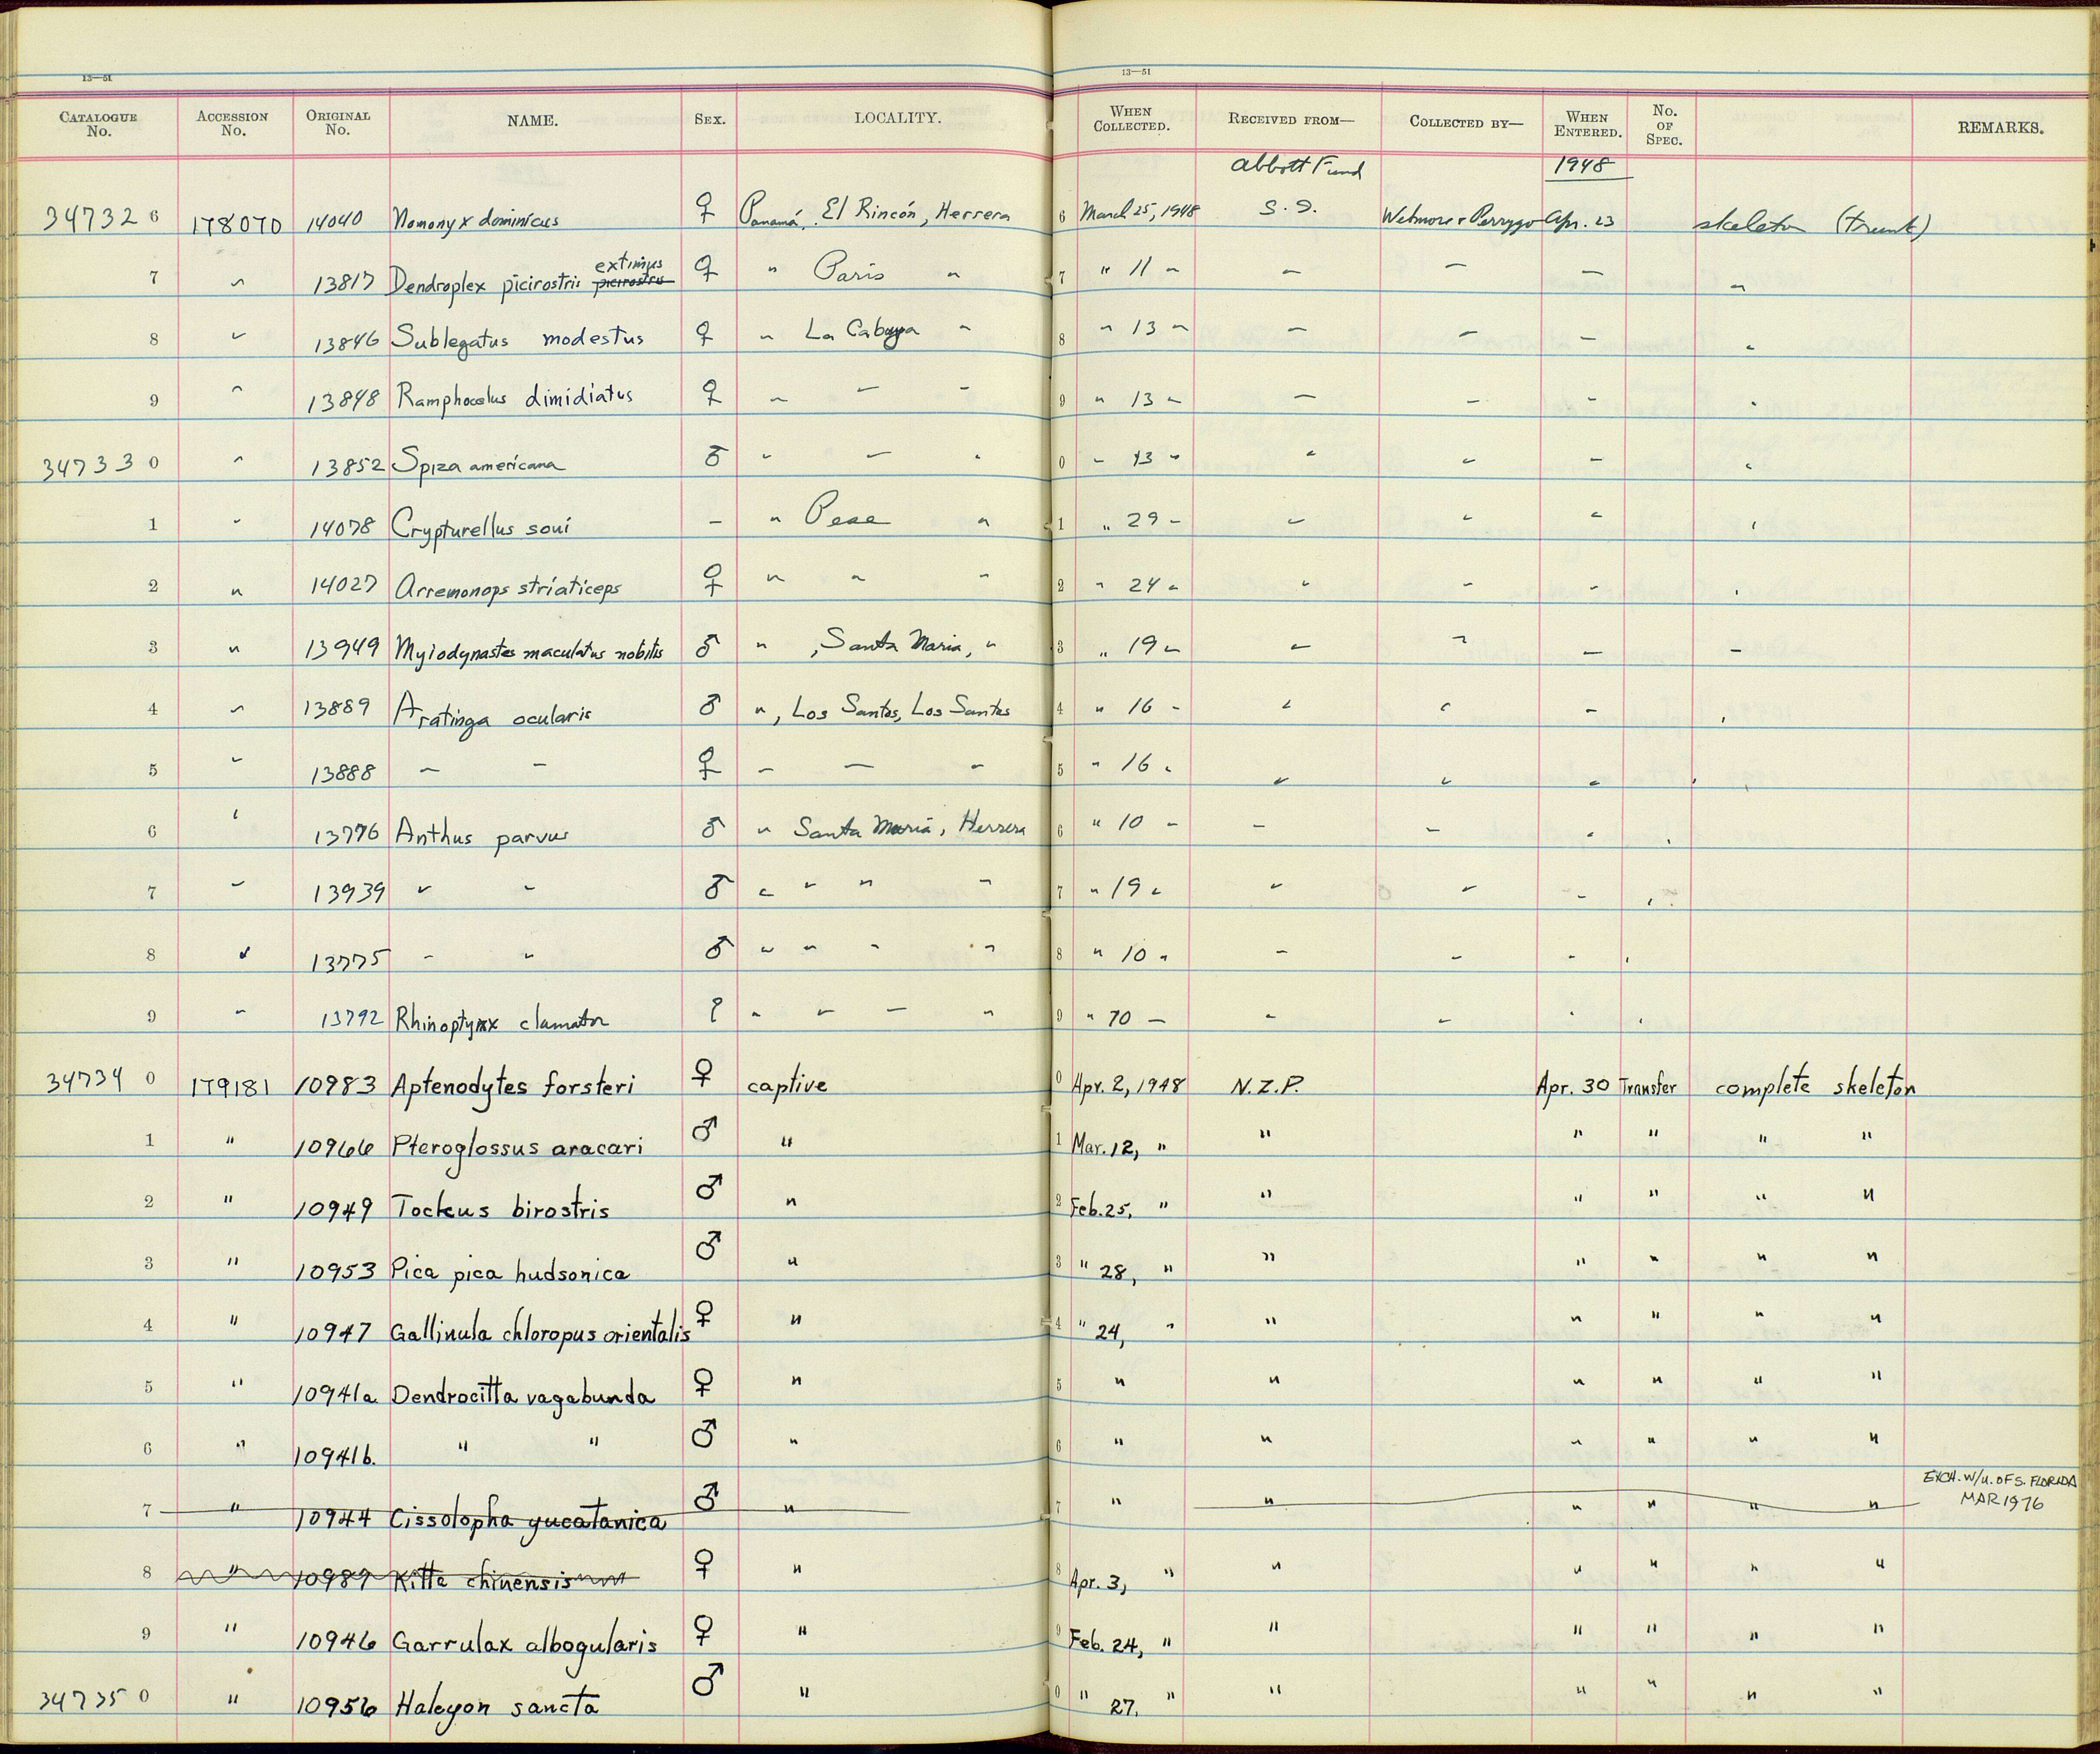 13—51 13—51
CATALOGUE No. ACCESSION No. ORIGINAL No. NAME. SEX. LOCALITY. WHEN COLLECTED. RECEIVED FROM— COLLECTED BY— WHEN ENTERED. No. OF SPEC. REMARKS.
Abbott Fund 1948
34732 6 178070 14040 Nomonyx dominicus ♀ Panamá, El Rincón, Herrera 6 March 25, 1948 S.I. Wetmore & Perrygo Apr. 23 skeleton (trunk)
extimus
7 " 13817 Dendroplex picirostris picirostris ♀ " Paris " 7 " 11 " " " " "
8 " 13846 Sublegatus modestus ♀ " La Cabuya " 8 " 13 " " " " "
9 " 13848 Ramphocelus dimidiatus ♀ " " " 9 " 13 " " " " "
34733 0 " 13852 Spiza americana ♂ " " " 0 " 13 " " " " "
1 " 14078 Crypturellus soui – " Pese " 1 " 29 " " " " "
2 " 14027 Arremonops striaticeps ♀ " " " 2 " 24 " " " " "
3 " 13949 Myiodynastes maculatus nobilis ♂ " , Santa Maria, " 3 " 19 " " " " "
4 " 13889 Aratinga ocularis ♂ " , Los Santos, Los Santos 4 " 16 " " " " "
5 " 13888 " " ♀ " " " 5 " 16 " " " " "
6 " 13776 Anthus parvus ♂ " Santa Maria, Herrera 6 " 10 " " " " "
7 " 13939 " " ♂ " " " " 7 " 19 " " " " "
8 " 13775 " " ♂ " " " " 8 " 10 " " " " "
9 " 13792 Rhinoptynx clamator ? " " " " 9 " 10 " " " " "
34734 0 179181 10983 Aptenodytes forsteri ♀ captive 0 Apr. 2, 1948 N.Z.P. Apr. 30 Transfer complete skeleton
1 " 10966 Pteroglossus aracari ♂ " 1 Mar. 12, " " " " " "
2 " 10949 Tockus birostris ♂ " 2 Feb. 25, " " " " " "
3 " 10953 Pica pica hudsonica ♂ " 3 " 28, " " " " " "
4 " 10947 Gallinula chloropus orientalis ♀ " 4 " 24, " " " " " "
5 " 10941a Dendrocitta vagabunda ♀ " 5 " " " " " "
6 " 10941b. " " ♂ " 6 " " " " " "
7 " 10944 Cissolopha yucatanica ♂ " 7 " " " " " " EXCH. W/U. OF S. FLORIDA
MAR 1976
8 " 10989 Kitta chinensis ♀ " 8 Apr. 3, " " " " " "
9 " 10946 Garrulax albogularis ♀ " 9 Feb. 24, " " " " " "
34735 0 " 10956 Halcyon sancta ♂ " 0 " 27. " " " " " "